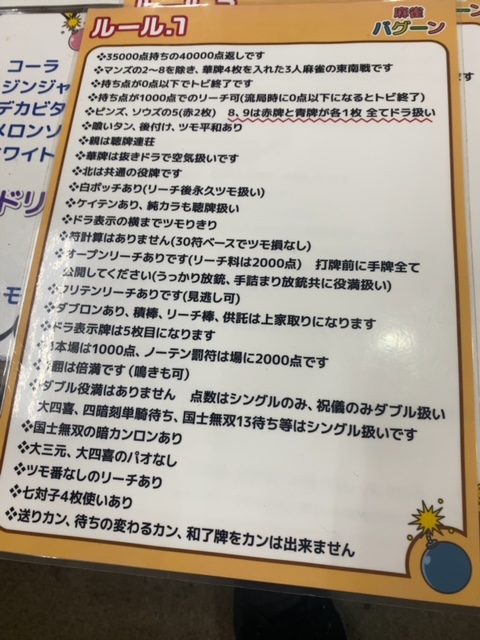 ルール.1
麻雀
バグーン
❖35000点持ちの40000点返しです
❖マンズの2〜8を除き、華牌4枚を入れた3人麻雀の東南戦です
❖持ち点が0点以下でトビ終了です
❖持ち点が1000点でのリーチ可(流局時に0点以下になるとトビ終了)
❖ピンズ、ソウズの5(赤2枚) 8、9は赤牌と青牌が各1枚 全てドラ扱い
❖喰いタン、後付け、ツモ平和あり
❖親は聴牌連荘
❖華牌は抜きドラで空気扱いです
❖北は共通の役牌です
❖白ポッチあり(リーチ後永久ツモ扱い)
❖ケイテンあり、純カラも聴牌扱い
❖ドラ表示の横までツモりきり
❖符計算はありません(30符ベースでツモ損なし)
❖オープンリーチありです(リーチ料は2000点) 打牌前に手牌全て
公開してください(うっかり放銃、手詰まり放銃共に役満扱い)
❖フリテンリーチありです(見逃し可)
❖ダブロンあり、積棒、リーチ棒、供託は上家取りになります
❖ドラ表示牌は5枚目になります
本場は1000点、ノーテン罰符は場に2000点です
翻は倍満です(鳴きも可)
❖ダブル役満はありません 点数はシングルのみ、祝儀のみダブル扱い
大四喜、四暗刻単騎待ち、国士無双13待ち等はシングル扱いです
❖国士無双の暗カンロンあり
❖大三元、大四喜のパオなし
❖ツモ番なしのリーチあり
❖七対子4枚使いあり
❖送りカン、待ちの変わるカン、和了牌をカンは出来ません
コーラ
ジンジャ
デカビタ
メロンソ
ワイト
ドリ
モ